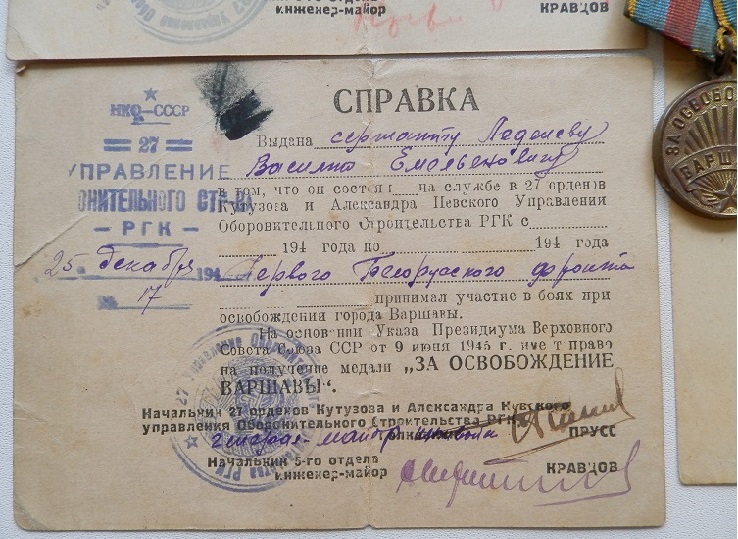 инженер-майор КРАВЦОВ
НКО—СССР
27
УПРАВЛЕНИЕ
ОНИТЕЛЬНОГО СТР
— РГК —
25 декабря 194
№ 17
СПРАВКА
Выдана сержанту
Василию Емельяновичу
в том, что он состоял на службе в 27 орденов
Кутузова и Александра Невского Управлении
Оборонительного Строительства РГК с
194 года по 194 года
Первого Белорусского фронта
принимал участие в боях при
освобождении города Варшавы.
На основании Указа Президиума Верховного
Совета Союза ССР от 9 июня 1945 г. имеет право
на получение медали „ЗА ОСВОБОЖДЕНИЕ
ВАРШАВЫ“.
Начальник 27 орденов Кутузова и Александра Невского
управления Оборонительного Строительства РГК
генерал-майор ПРУСС
Начальник 5-го отдела
инженер-майор КРАВЦОВ
ЗА ОСВОБО
ВАРШ